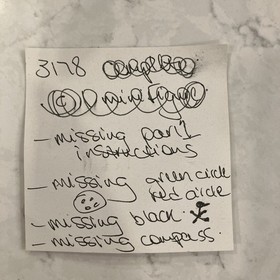 3178 complete
© 1 minifigure
- missing part 1
instructions
- missing green circle
red circle
- missing black
- missing compass.